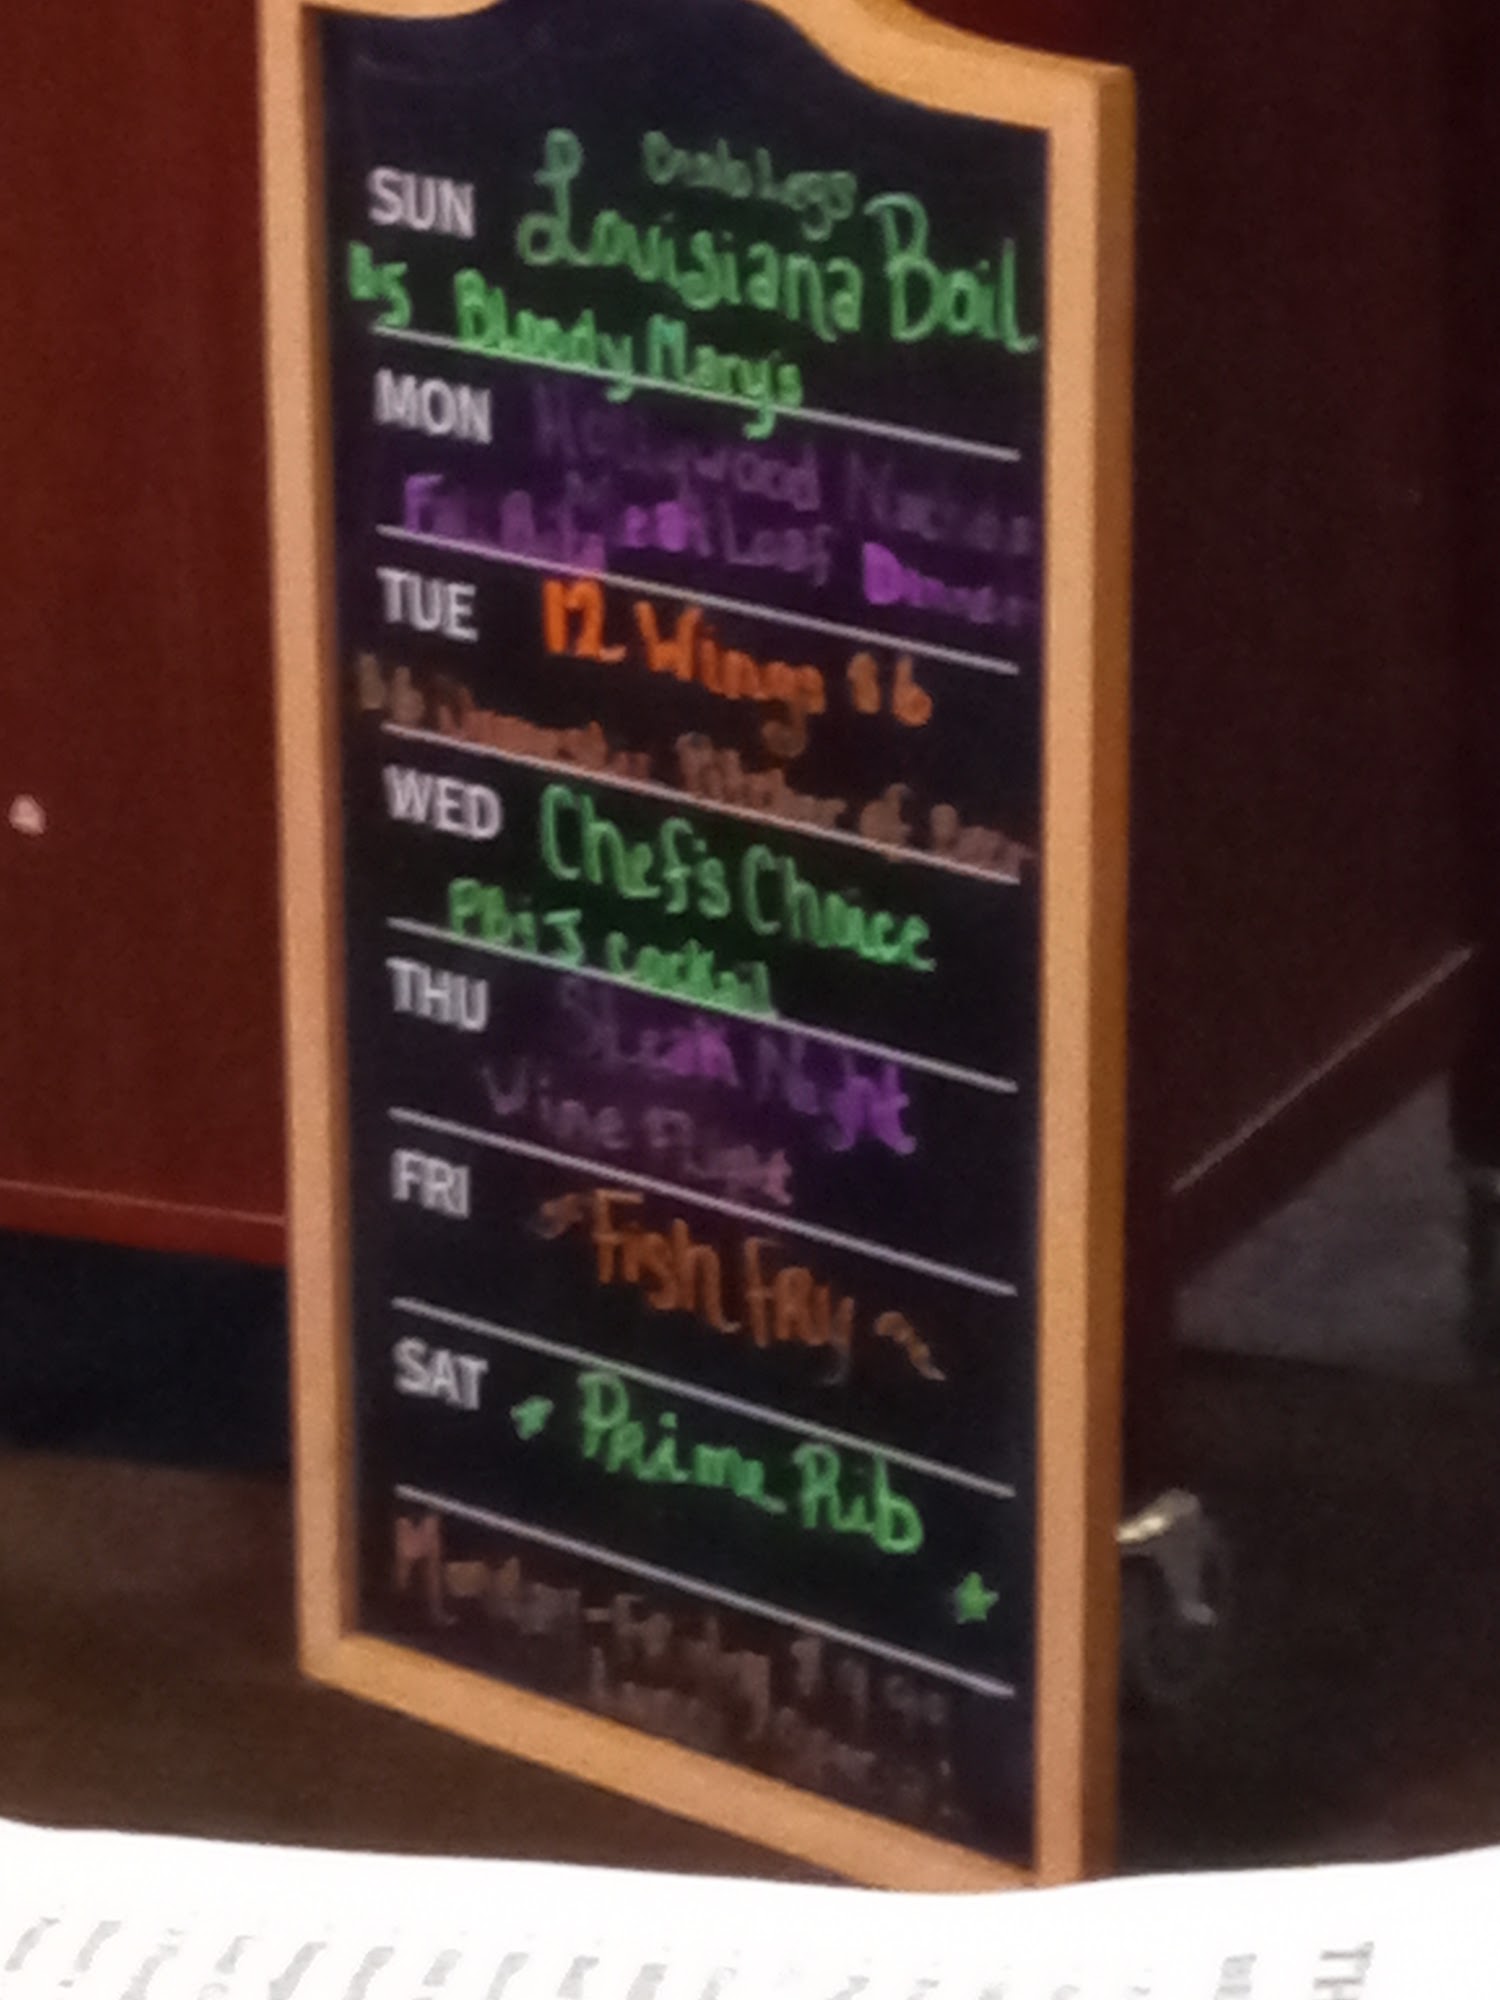 SUN Louisiana Boil
$5 Bloody Mary's
MON Hollywood Nachos
Meat Loaf Dinner
TUE 12 Wings $6
$6 Domestic Pitcher of Beer
WED Chef's Choice
PB&J cocktail
THU Steak Night
Wine Flight
FRI Fish Fry
SAT Prime Rib
Monday-Friday